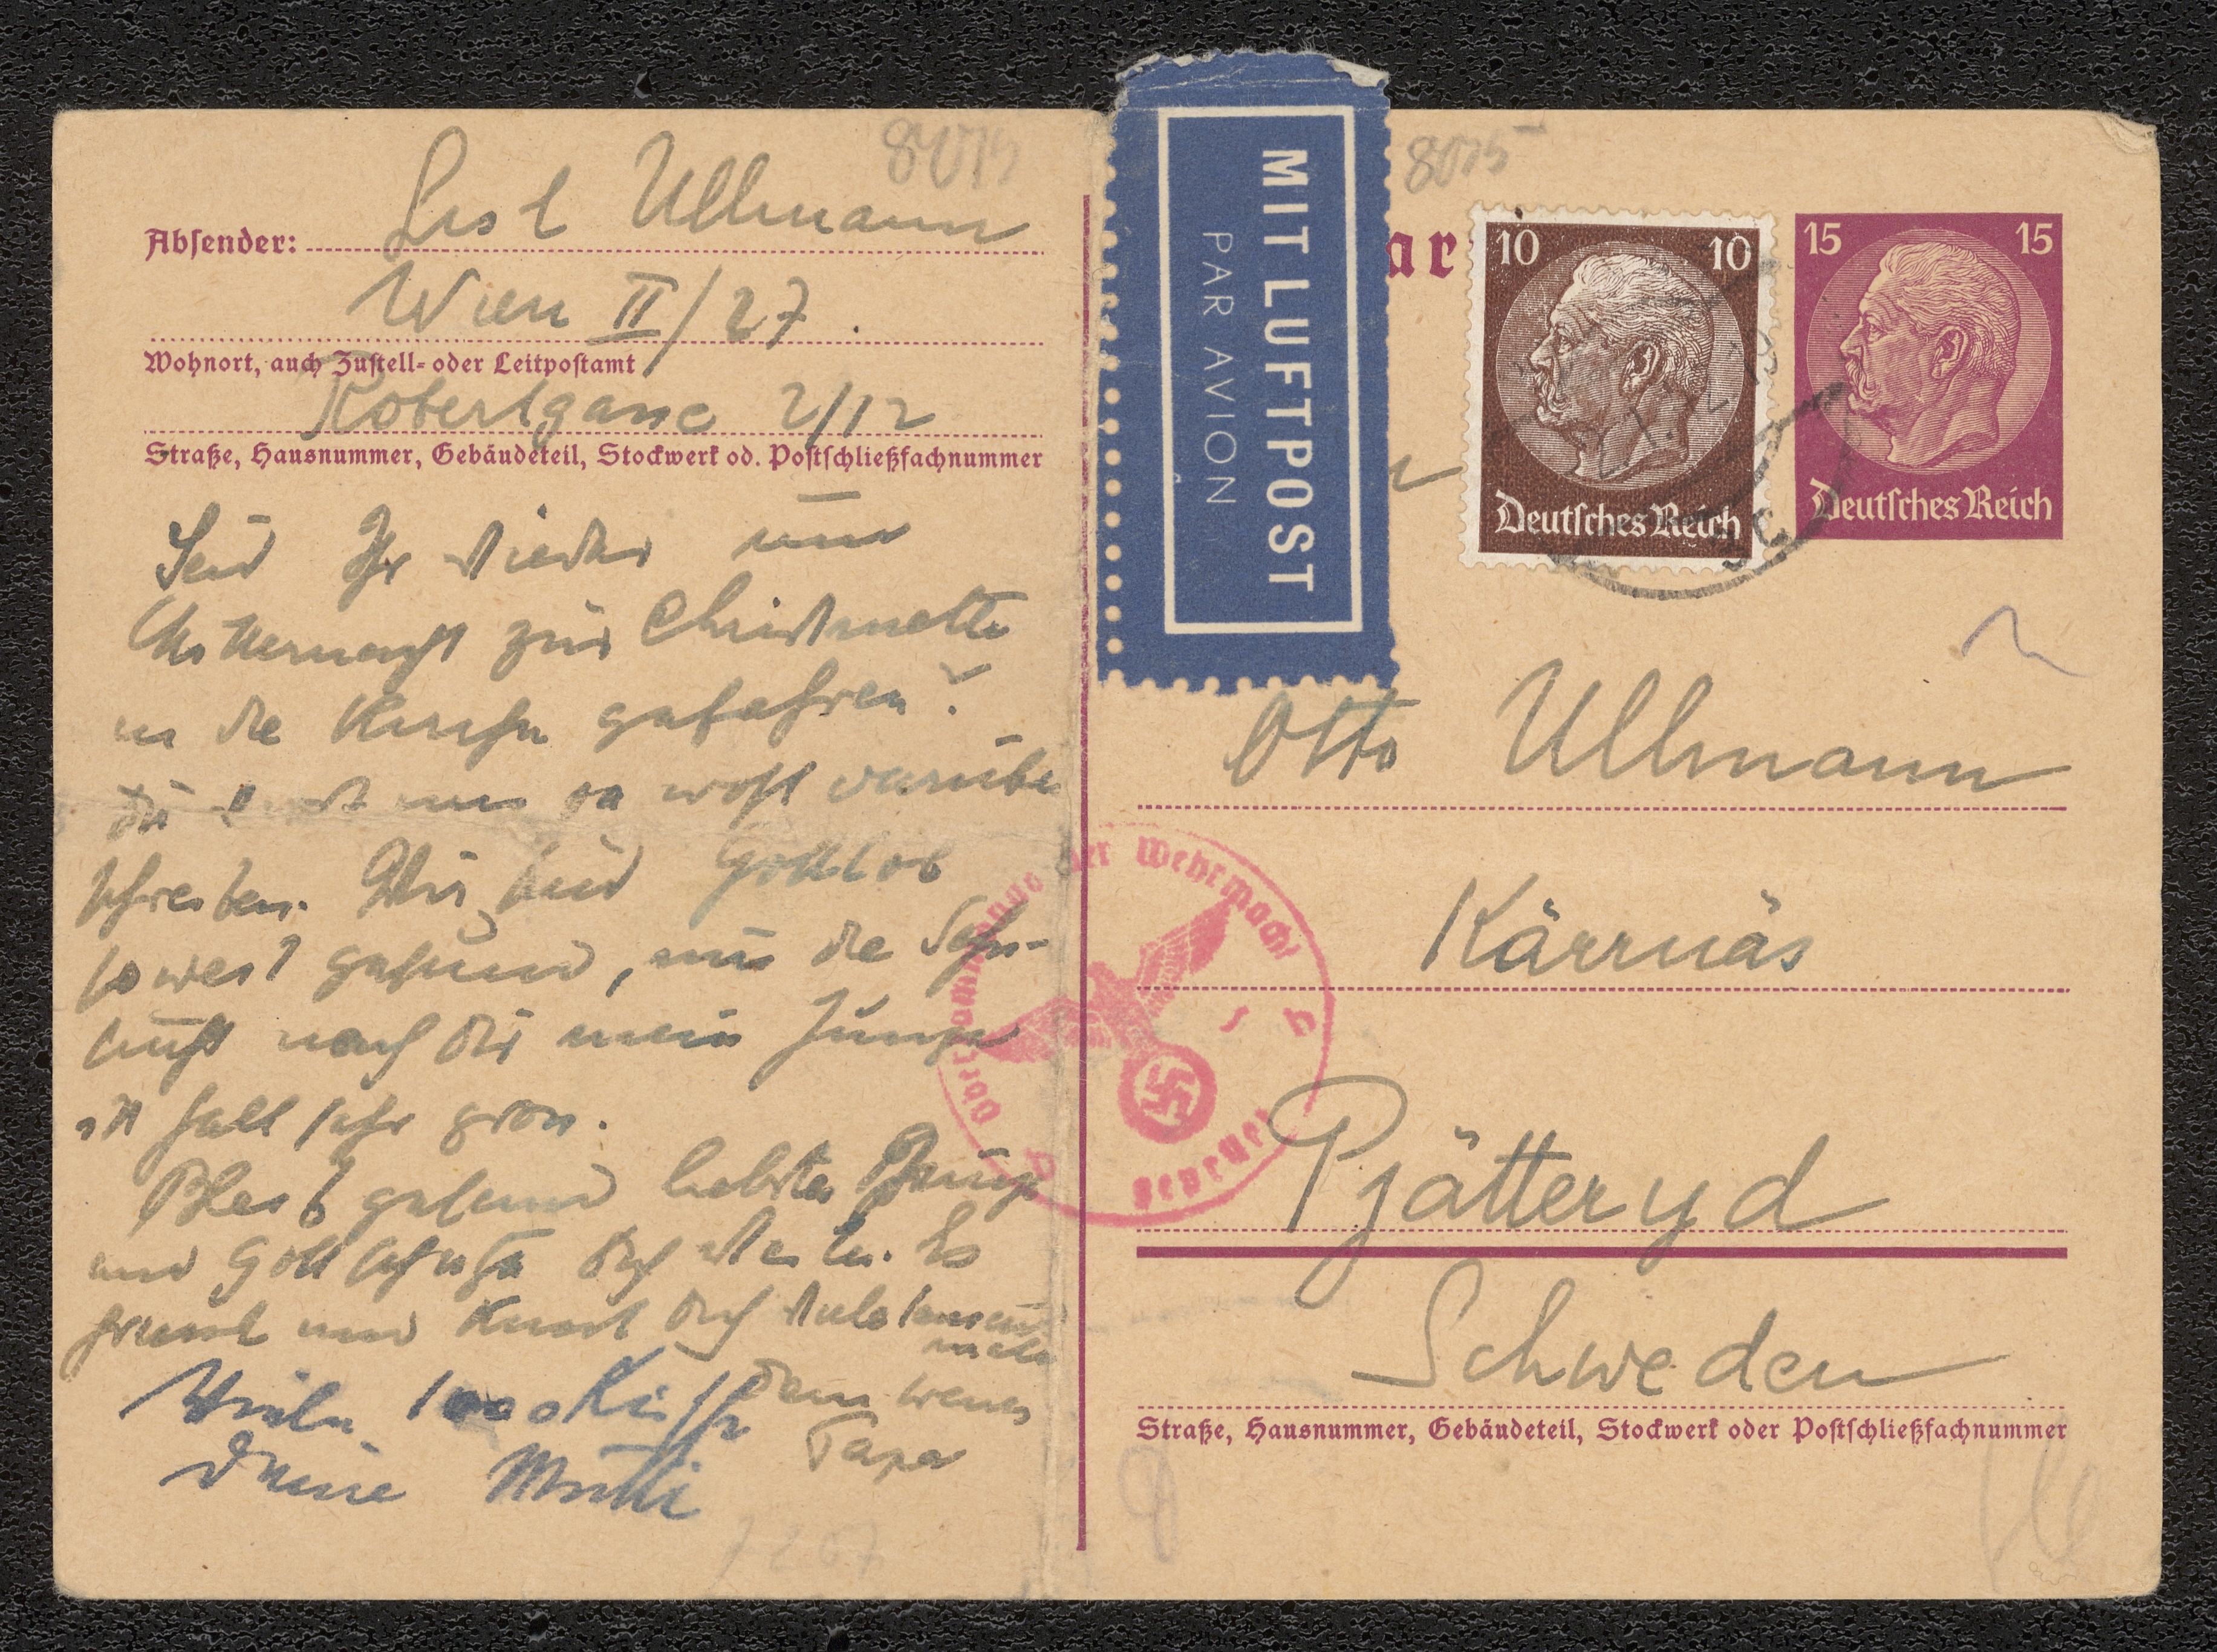 8015
Absender: Lisl Ullmann
Wien II/27.
Wohnort, auch Zustell- oder Leitpostamt
Robertgasse 2/12
Straße, Hausnummer, Gebäudeteil, Stockwerk od. Postschließfachnummer
Seid Ihr wieder um
Mitternacht zur Christmette
in die Kirche gefahren?
Du wirst mir ja wohl darüber
schreiben. Wir sind Gottlob
soweit gesund, nur die Sehn-
sucht nach Dir mein Junge
ist halt sehr gross.
Bleib gesund liebster Junge
und Gott schütze Dich weiter. Es
grüsst und küsst Dich viele tausend
male
Dein
Papa
Viele 1000 Küsse
Deine Mutti
MIT LUFTPOST
PAR AVION
8015
10 10
Deutsches Reich
15 15
Deutsches Reich
Otto Ullmann
Kärrnäs
Pjätteryd
Schweden
Straße, Hausnummer, Gebäudeteil, Stockwerk oder Postschließfachnummer
Oberkommando der Wehrmacht
Geprüft